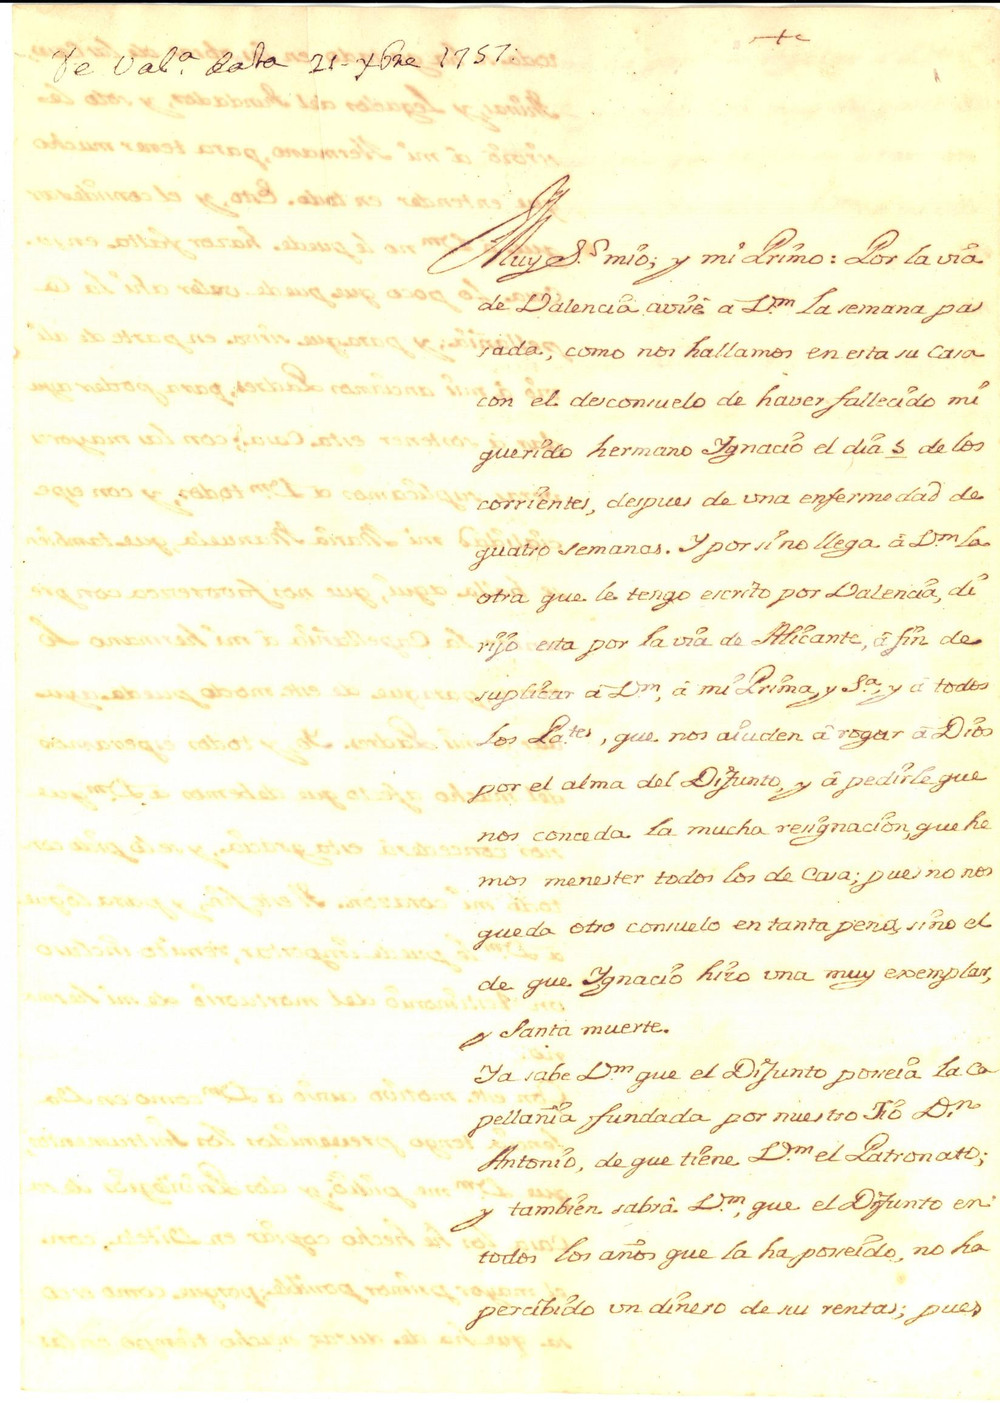 +
Va Val.ª data 21 - Xbre 1757.
Muy S.r mio; y mi Primo: Por la via
de Valencia avisè a Vm. la semana pa
sada, como nos hallamos en esta su Casa
con el desconsuelo de haver fallecido mi
querido hermano Ygnacio el dia 5 de los
corrientes, despues de una enfermedad de
quatro semanas. Y por si no llega â Vm. la
otra que le tengo escrito por Valencia, di
rijo esta por la via de Alicante, â fin de
suplicar â Vm, â mi Prima, y S.ª, y â todos
los Pa.tes, que nos aiuden â rogar â Dios
por el alma del Difunto, y â pedirle que
nos conceda la mucha resignacion, que he
mos menester todos los de Casa; pues no nos
queda otro consuelo en tanta pena, sino el
de que Ygnacio hizo una muy exemplar,
y Santa muerte.
Ya sabe Vm. que el Difunto poseia la Ca
pellania fundada por nuestro Tio D.n
Antonio, de que tiene Vm. el Patronato;
y tambien sabrâ Vm, que el Difunto en
todos los años que la ha poseido, no ha
percibido un dinero de su rentas; pues